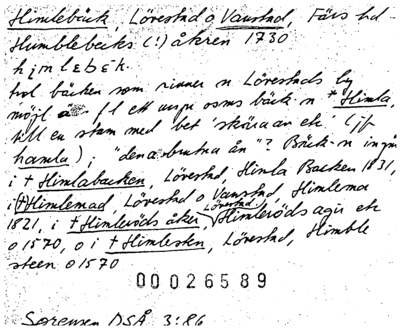 Himlebäck Lövestad o Vanstad, Färs hd
Humblebecks (!) åkren 1730
himlebek.
hol bäcken som rinner n Lövestads by
möjl fl ett urspr osms bäck-n † Himla,
till en stam med bet 'skära av etc' (jfr
hamla); "den a brutna ån"? Bäck-n ingår
i † Himlabacken, Lövestad, Himla Backen 1831,
i (†) Himlemad, Lövestad o Vanstad, Himlema
1821, i † Himleröds åker, Lövestad, Himleröds agir etc
o 1570, o i † Himlesten, Lövestad, Himble
steen o 1570
00026589
Sørensen DSÅ 3:86